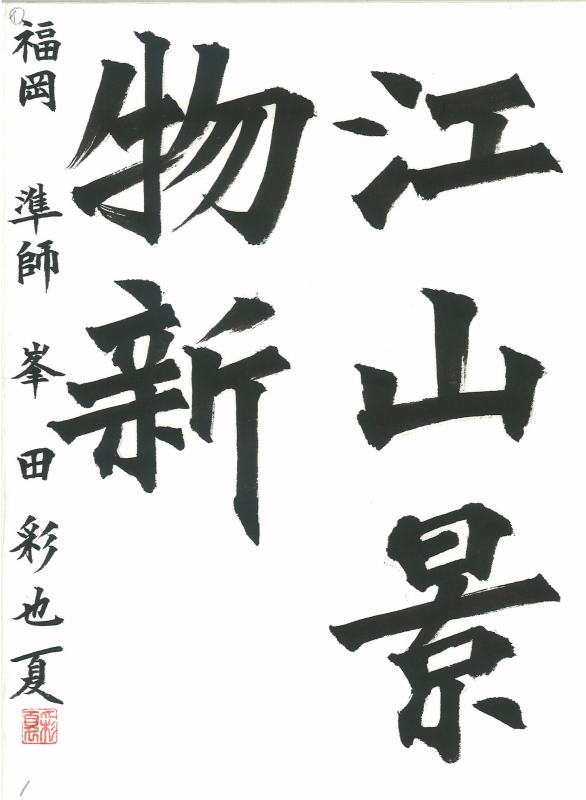 江山景
物新
福岡 準師 峯田彩也夏
彩夏